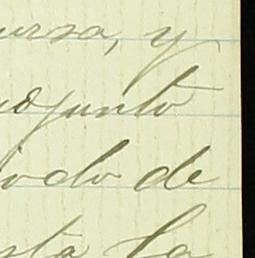 ursa, y
djunto
odo de
sta la